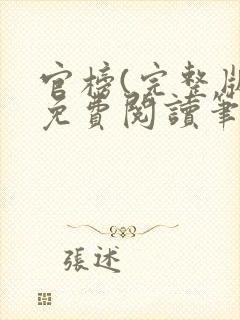 官榜(完整版
免費閱讀筆
張述